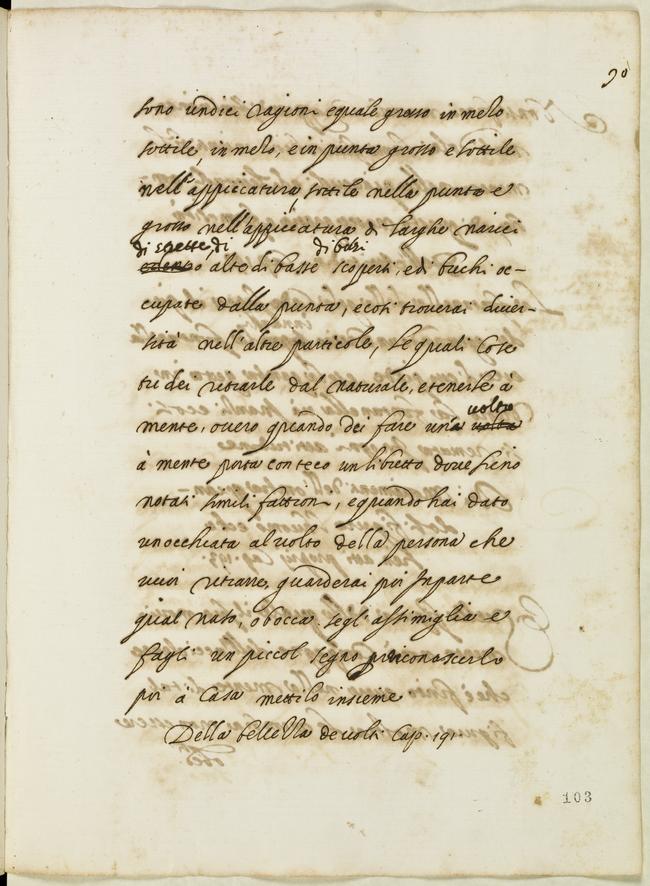 90
sono undici ragioni equale grosso in mezo
sottile, in mezo, e in punta grosso e sottile
nell'appiccatura, sottile nella punta e
grosso nell'appiccatura di larghe narici
di strette, di di busi
o alte di basse scoperti, e di buchi oc-
cupate dalla punta, e cosi trouerai diuer-
sità nell'altre particole, le quali Cose
tu dei ritrarle dal naturale, e tenerle à
uolto
mente, ouero quando dei fare una uolta
à mente porta con teco un libretto doue sieno
notati simili fattioni, e quando hai dato
un occhiata al uolto della persona che
uuoi ritrarre, guarderai poi in parte
qual naso, o bocca segl'assimiglia e
fagli un piccol segno per riconoscerlo
poi à Casa mettilo insieme
Della bellezza de uolti Cap. 191.
103